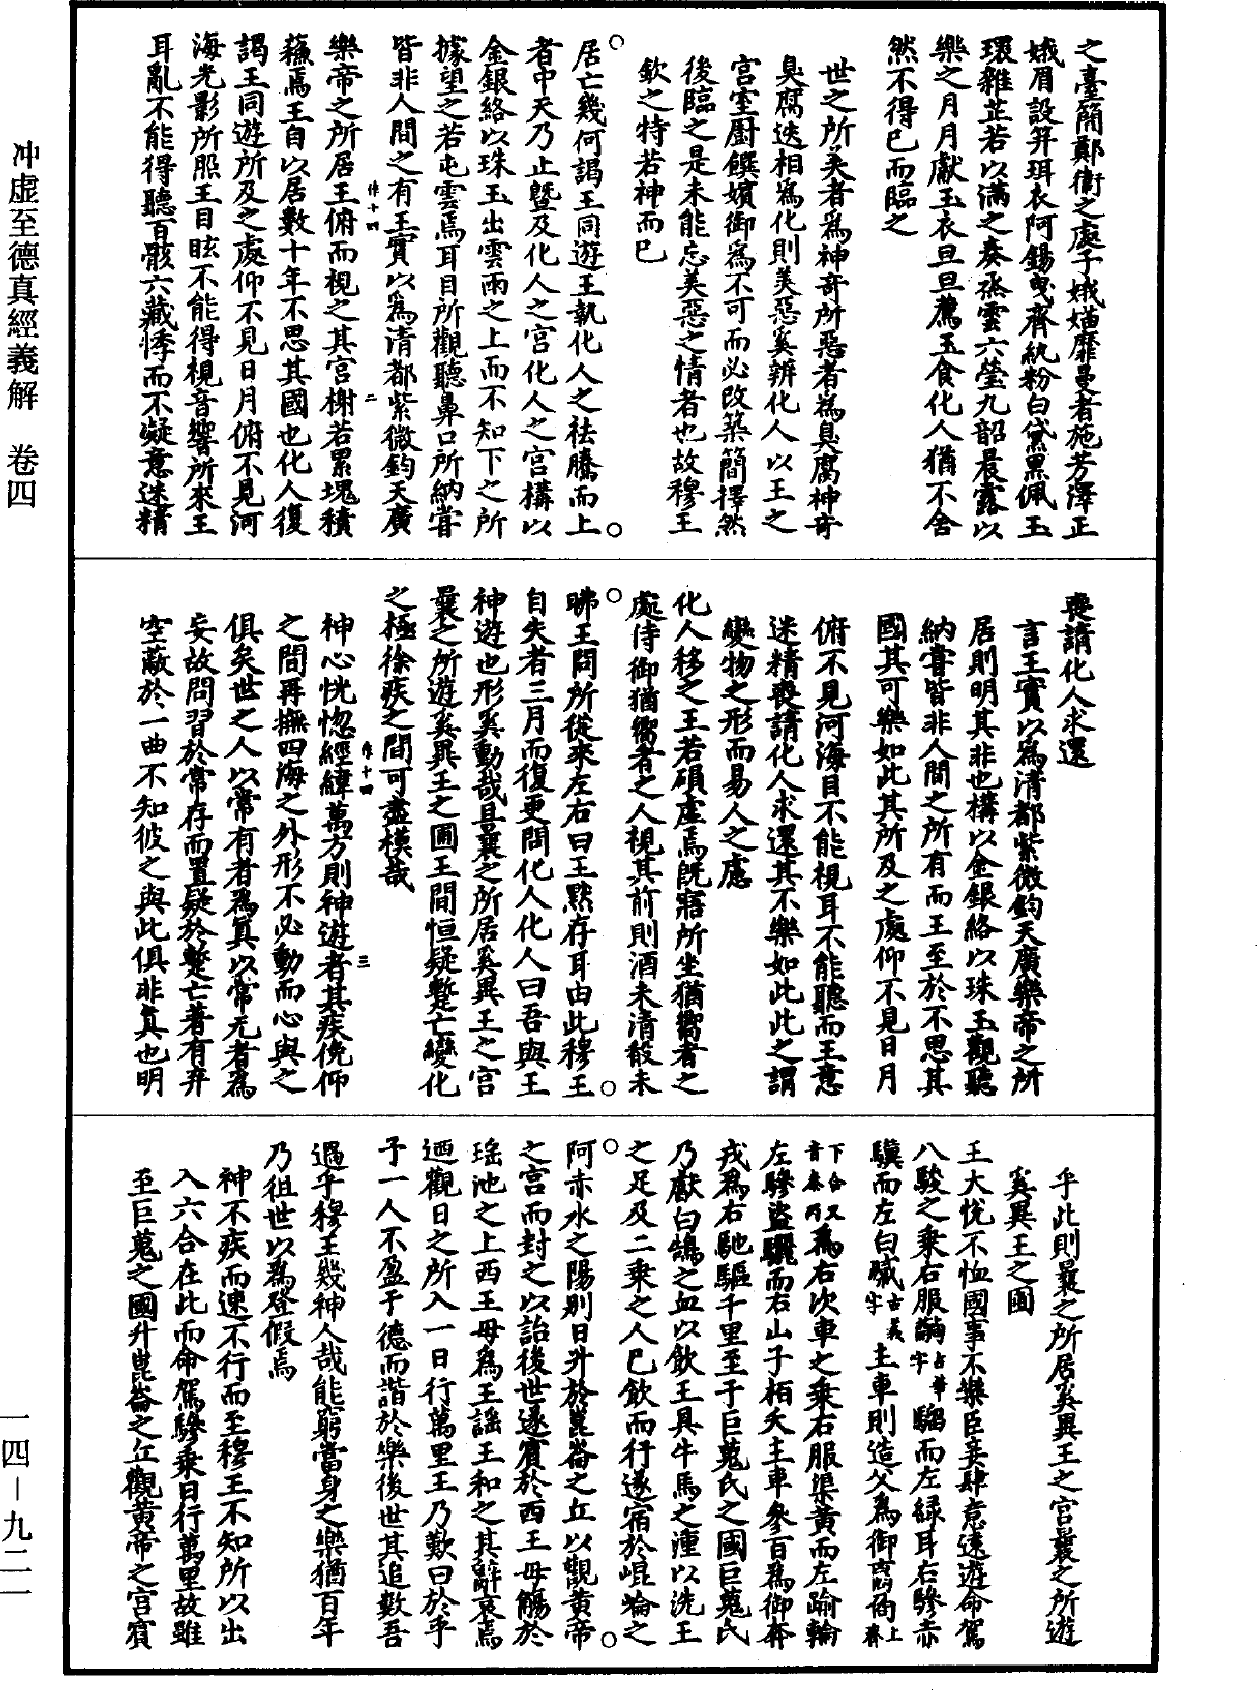 之臺簡鄭衛之處子娥媌靡曼者施芳澤正
娥眉設笄珥衣阿錫曳齊紈粉白黛黑佩玉
環雜芷若以滿之奏承雲六瑩九韶晨露以
樂之月月獻玉衣旦旦薦玉食化人猶不舍
然不得已而臨之
世之所美者爲神奇所惡者爲臭腐神奇
臭腐迭相爲化則美惡奚辨化人以王之
宮室廚饌嬪御爲不可而必改築簡擇然
後臨之是未能忘美惡之情者也故穆王
欽之特若神而已
○居亡幾何謁王同遊王執化人之袪騰而上○
者中天乃止暨及化人之宮化人之宮構以
金銀絡以珠玉出雲雨之上而不知下之所
據望之若屯雲焉耳目所觀聽鼻口所納甞
皆非人間之有王實以爲清都紫微鈞天廣
作十四 二
樂帝之所居王俯而視之其宮榭若累塊積
蘇焉王自以居數十年不思其國也化人復
謁王同遊所及之處仰不見日月俯不見河
海光影所照王目眩不能得視音響所來王
耳亂不能得聽百骸六藏悸而不凝意迷精
喪請化人求還
言王實以爲清都紫微鈞天廣樂帝之所
居則明其非也構以金銀絡以珠玉觀聽
納甞皆非人間之所有而王至於不思其
國其可樂如此其所及之處仰不見日月
俯不見河海目不能視耳不能聽而王意
迷精喪請化人求還其不樂如此此之謂
變物之形而易人之慮
化人移之王若磒虛焉既寤所坐猶嚮者之
處侍御猶嚮者之人視其前則酒未清殽未
○昲王問所從來左右曰王默存耳由此穆王○
自失者三月而復更問化人化人曰吾與王
神遊也形奚動哉且曩之所居奚異王之宮
曩之所遊奚異王之圃王間恒疑蹔亡變化
之極徐疾之間可盡模哉
作十四 三
神心恍惚經緯萬方則神遊者其疾俛仰
之間再撫四海之外形不必動而心與之
俱矣世之人以常有者爲真以常无者爲
妄故問習於常存而置疑於蹔亡著有弃
空蔽於一曲不知彼之與此俱非真也明
乎此則曩之所居奚異王之宮曩之所遊
奚異王之圃
王大悅不恤國事不樂臣妾肆意遠遊命駕
八駿之乘右服𩧢古華字騮而左綠耳右驂赤
驥而左白𣚘古義字主車則造父爲御𧮪𠱷上齊
下合又音泰丙爲右次車之乘右服渠黃而左踰輪
左驂盜驪而右山子栢夭主車參百爲御奔
戎爲右馳驅千里至于巨蒐氏之國巨蒐氏
乃獻白鵠之血以飲王具牛馬之湩以洗王
之足及二乘之人已飲而行遂宿於崐崘之
○阿赤水之陽別日升於崑崙之丘以觀黃帝○
之宮而封之以詒後世遂賓於西王母觴於
瑤池之上西王母爲王謠王和之其辭哀焉
迺觀日之所入一日行萬里王乃歎曰於乎
予一人不盈于德而諧於樂後世其追數吾
過乎穆王幾神人哉能窮當身之樂猶百年
乃徂世以爲登假焉
神不疾而速不行而至穆王不知所以出
入六合在此而命駕驂乘日行萬里故雖
至巨蒐之國升崑崙之丘觀黃帝之宮賓
冲虛至德真經義解 卷四
一四—九二一